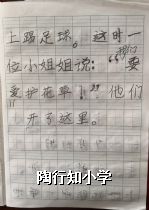 上踢足球。这时一
位小姐姐说：“我们要
爱护花草！”他们
开了这里。
陶行知小学